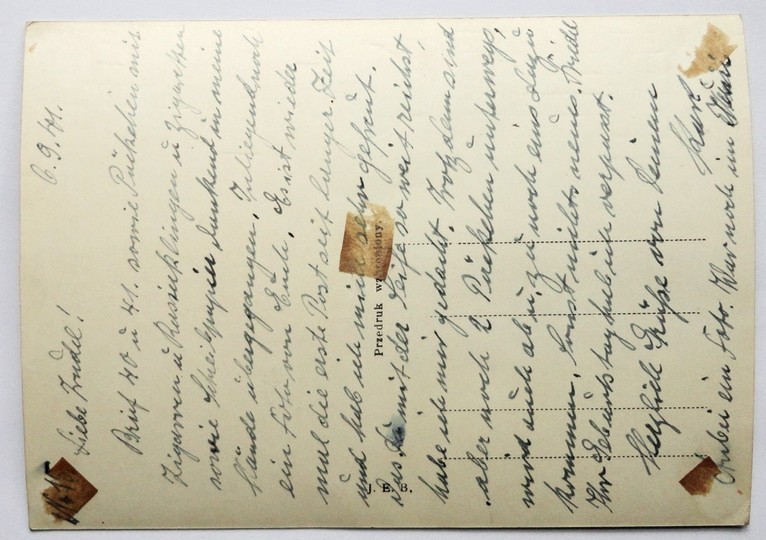 6.9.41.
Liebe Trudel!
Brief 40 u 41. sowie Päckchen mit
Zigarren u Rasierklingen u Zigaretten
sowie Schreibpapier dankend in meine
Hände übergegangen. Inliegend noch
ein Foto von Euch. Es ist wieder
mal die erste Post seit langer Zeit
und hab ich mich sehr gefreut.
Das Du mit der Seife so weit reichst,
habe ich mir gedacht. Trotzdem sind
aber noch 2 Päckchen unterwegs,
wird auch ab u. zu noch eins dazu
kommen. Sonst nichts neues.
Ihr Geburtstag hab ich verpasst.
Herzlich Grüße von Deinem
Kurt
Anbei ein Foto. War noch im
Przedruk wzbroniony.
J. E. B.